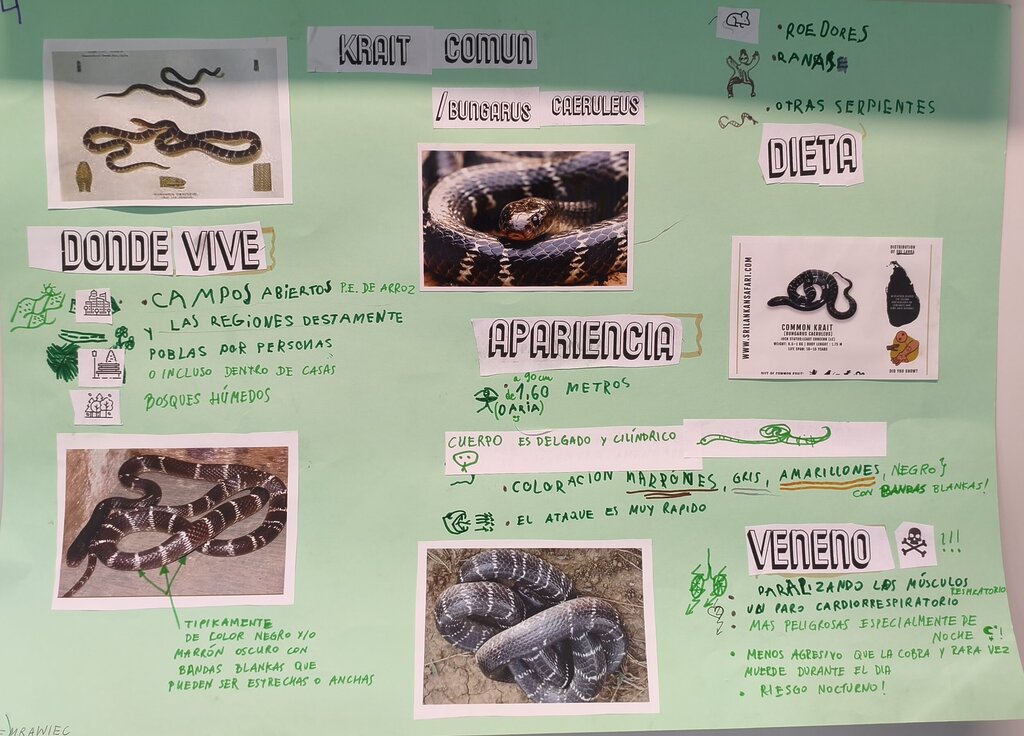 4
KRAIT COMUN
/BUNGARUS CAERULEUS
DONDE VIVE
• CAMPOS ABIERTOS P.E. DE ARROZ
Y LAS REGIONES DESTAMENTE
POBLAS POR PERSONAS
O INCLUSO DENTRO DE CASAS
BOSQUES HÚMEDOS
TIPIKAMENTE
DE COLOR NEGRO Y/O
MARRÓN OSCURO CON
BANDAS BLANKAS QUE
PUEDEN SER ESTRECHAS O ANCHAS
• ROEDORES
• RANAS
• OTRAS SERPIENTES
DIETA
WWW.SRILANKANSAFARI.COM
DISTRIBUTION
OF SRI LANKA
COMMON KRAIT
(BUNGARUS CAERULEUS)
DID YOU KNOW?
APARIENCIA
a 90 cm
• de 1,60 METROS
(O ARIA)
CUERPO ES DELGADO Y CILÍNDRICO
• COLORACION MARRONES, GRIS, AMARILLONES, NEGRO
CON BANDAS BLANKAS!
• EL ATAQUE ES MUY RAPIDO
VENENO !!!
• PARALIZANDO LOS MÚSCULOS RESPIRATORIO
• UN PARO CARDIORRESPIRATORIO
• MAS PELIGROSAS ESPECIALMENTE DE
NOCHE !
• MENOS AGRESIVO QUE LA COBRA Y RARA VEZ
MUERDE DURANTE EL DIA
• RIESGO NOCTURNO!
MRAWIEC